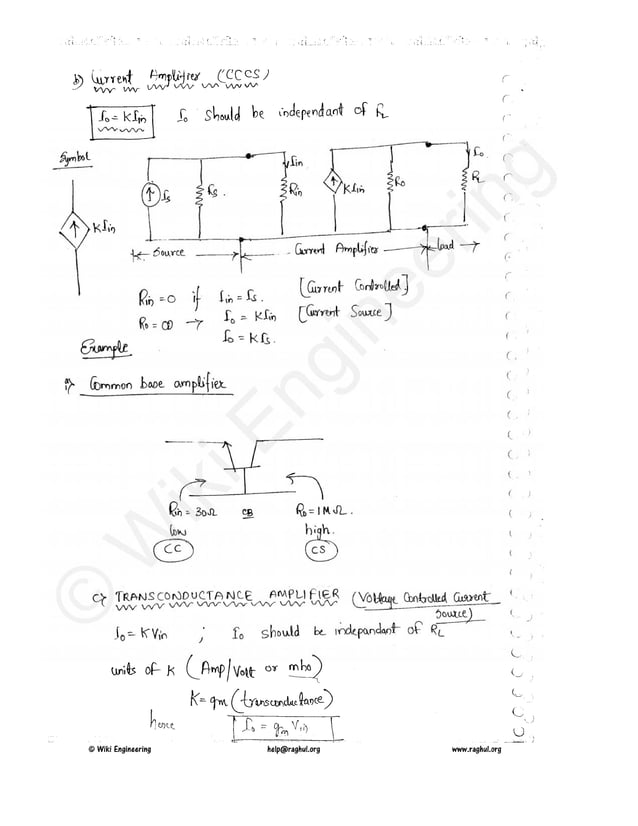 b) Current Amplifier (CCCS)
Io = KIin Io should be independant of RL
Symbol
KIin
Is
Rs
Iin
Rin
KIin
Ro
Io
RL
Source
Current Amplifier
load
Rin = 0 if Iin = Is. [Current Controlled]
Ro = ∞ → Io = KIin [Current Source]
Io = KIs.
Example
Common base amplifier
Rin = 30Ω CB Ro = 1MΩ.
low high.
CC CS
c) TRANSCONDUCTANCE AMPLIFIER (Voltage Controlled Current
Source)
Io = KVin ; Io should be indepandant of RL
units of K (Amp/Volt or mho)
K = gm (transconductance)
hence Io = gm Vin
© Wiki Engineering help@raghul.org www.raghul.org
© Wiki Engineering